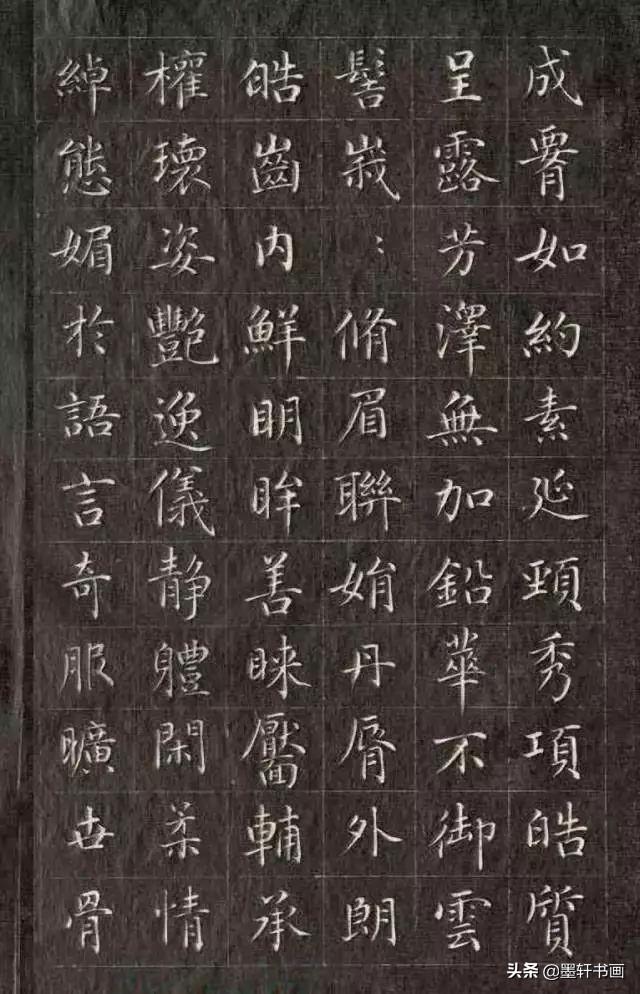 成腰如約素延頸秀項皓質
呈露芳澤無加鉛華不御雲
髻峩：脩眉聯娟丹脣外朗
皓齒内鮮明眸善睞靨輔承
權瓌姿豔逸儀静軆閑柔情
綽態媚於語言奇服曠世骨
头条 @墨轩书画